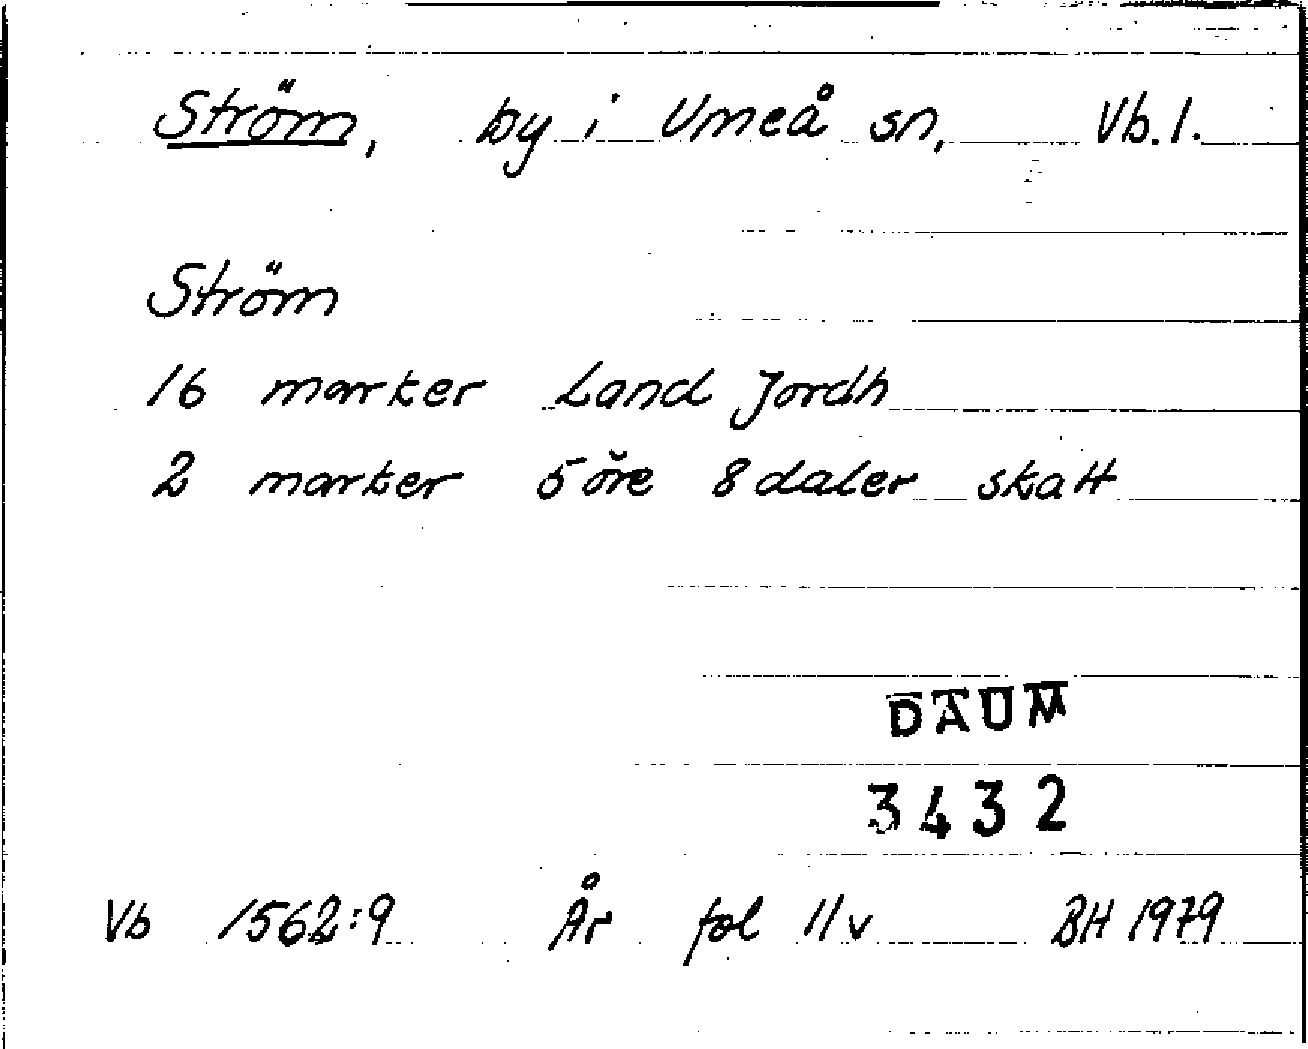 Ström, by i Umeå sn, Vb. 1.
Ström
16 marker Land Jordh
2 marker 5 öre 8 daler skatt
DAUM
3432
Vb 1562:9 År fol 11v BH 1979